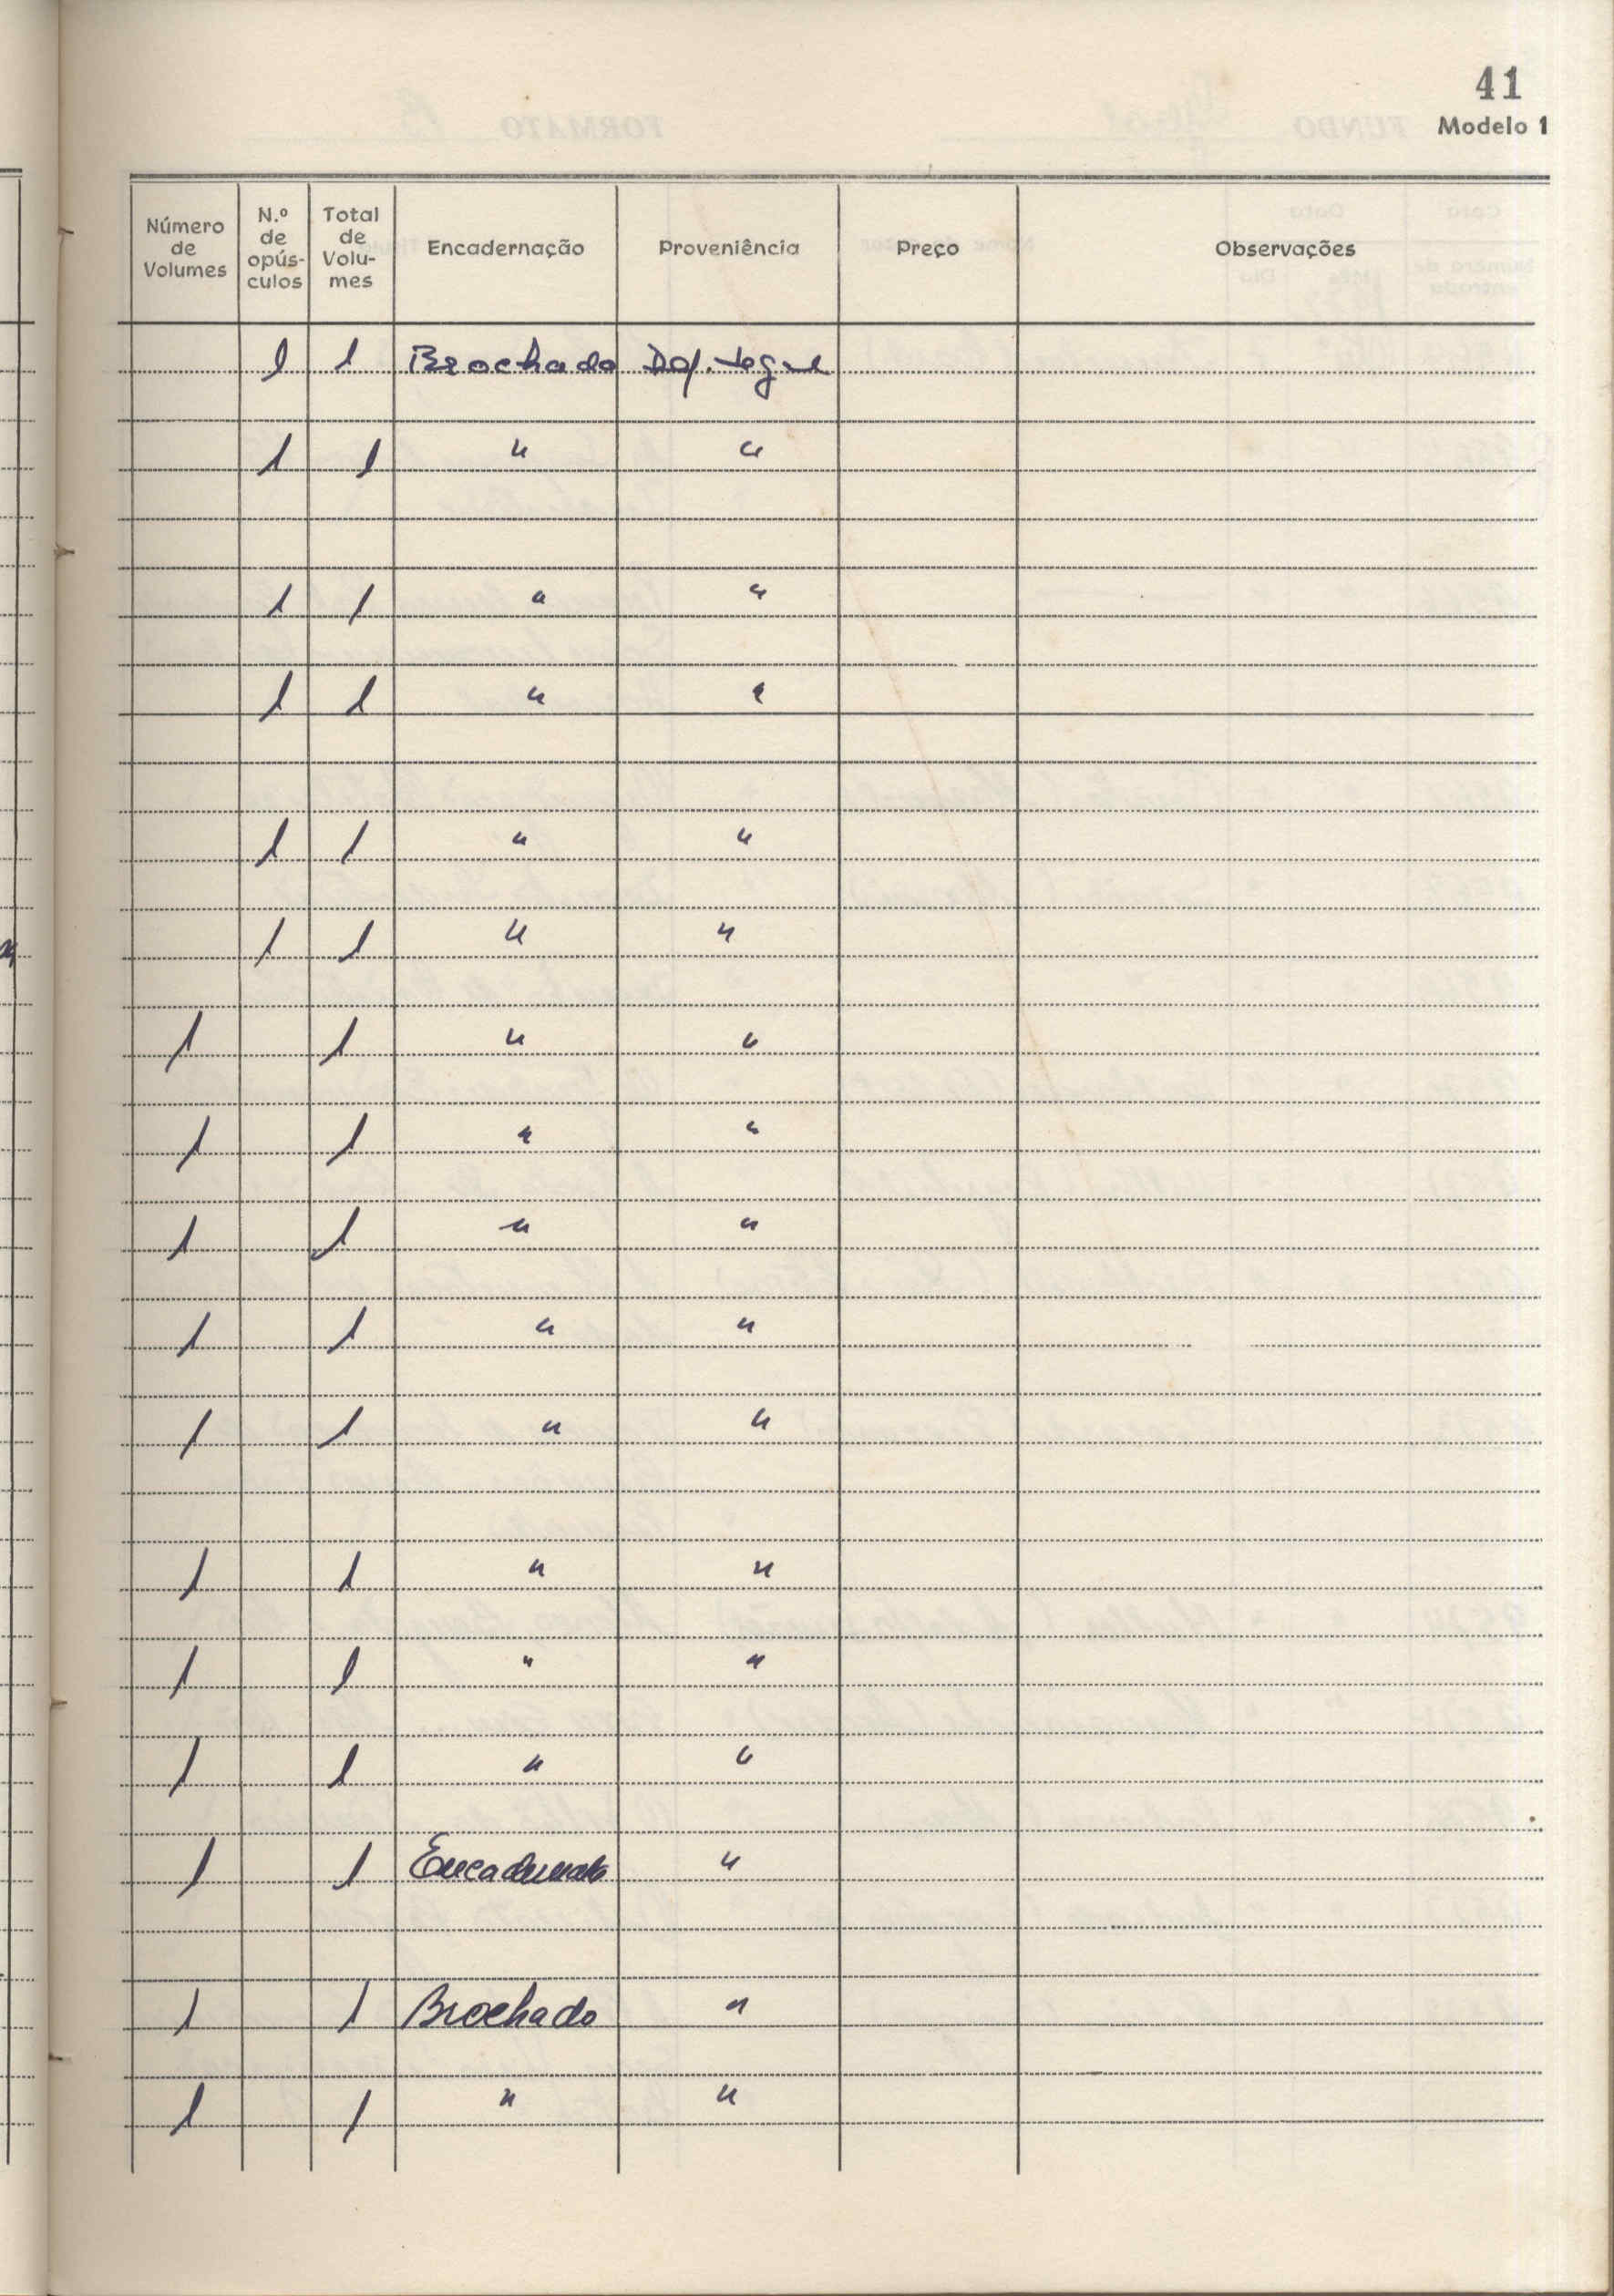 41
Modelo 1
Número de Volumes N.º de opús-culos Total de Volu-mes Encadernação Proveniência Preço Observações
1 1 Brochado Dep. Legal
1 1 " "
1 1 " "
1 1 " "
1 1 " "
1 1 " "
1 1 " "
1 1 " "
1 1 " "
1 1 " "
1 1 " "
1 1 " "
1 1 " "
1 1 " "
1 1 Encadernado "
1 1 Brochado "
1 1 " "